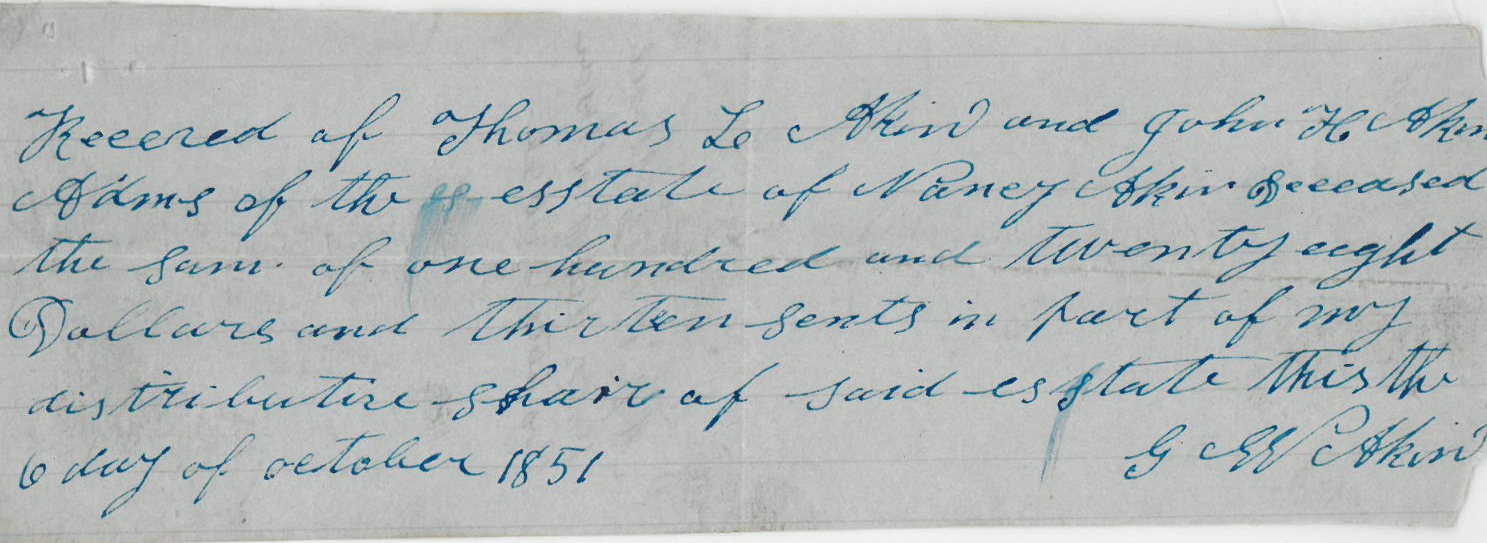 Recered of Thomas L Akin and John H Akin
Adms of the es esstate of Nancy Akin Deceased
the sum of one hundred and twenty eight
Dollars and thirteen sents in part of my
distributire shair of said esstate this the
6 day of october 1851
G W Akin